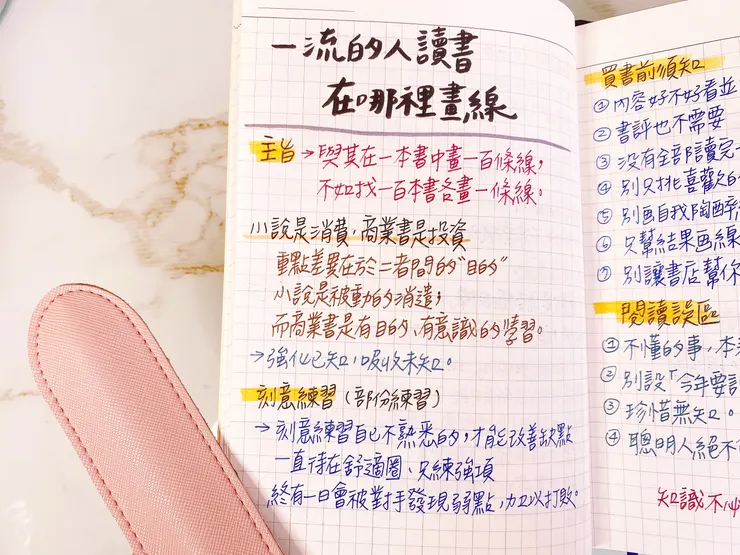 一流的人讀書
在哪裡畫線
主旨→與其在一本書中畫一百條線,
不如找一百本書各畫一條線。
小說是消費,商業書是投資
重點差異在於二者間的"目的"
小說是被動的消遣;
而商業書是有目的、有意識的學習。
→強化已知,吸收未知。
刻意練習(部份練習)
→刻意練習自己不熟悉的,才能改善缺點
一直待在舒適圈、只練強項
終有一日會被對手發現弱點,加以打敗。
買書前須知
①內容好不好看並
②書評也不需要
③沒有全部讀完
④別只挑喜歡的
⑤別画自我陶醉
⑥只幫結果画線
⑦別讓書店幫你
閱讀誤區
①不懂的事,本
②別設「今年要
③珍惜無知。
④聰明人絕不
知識不